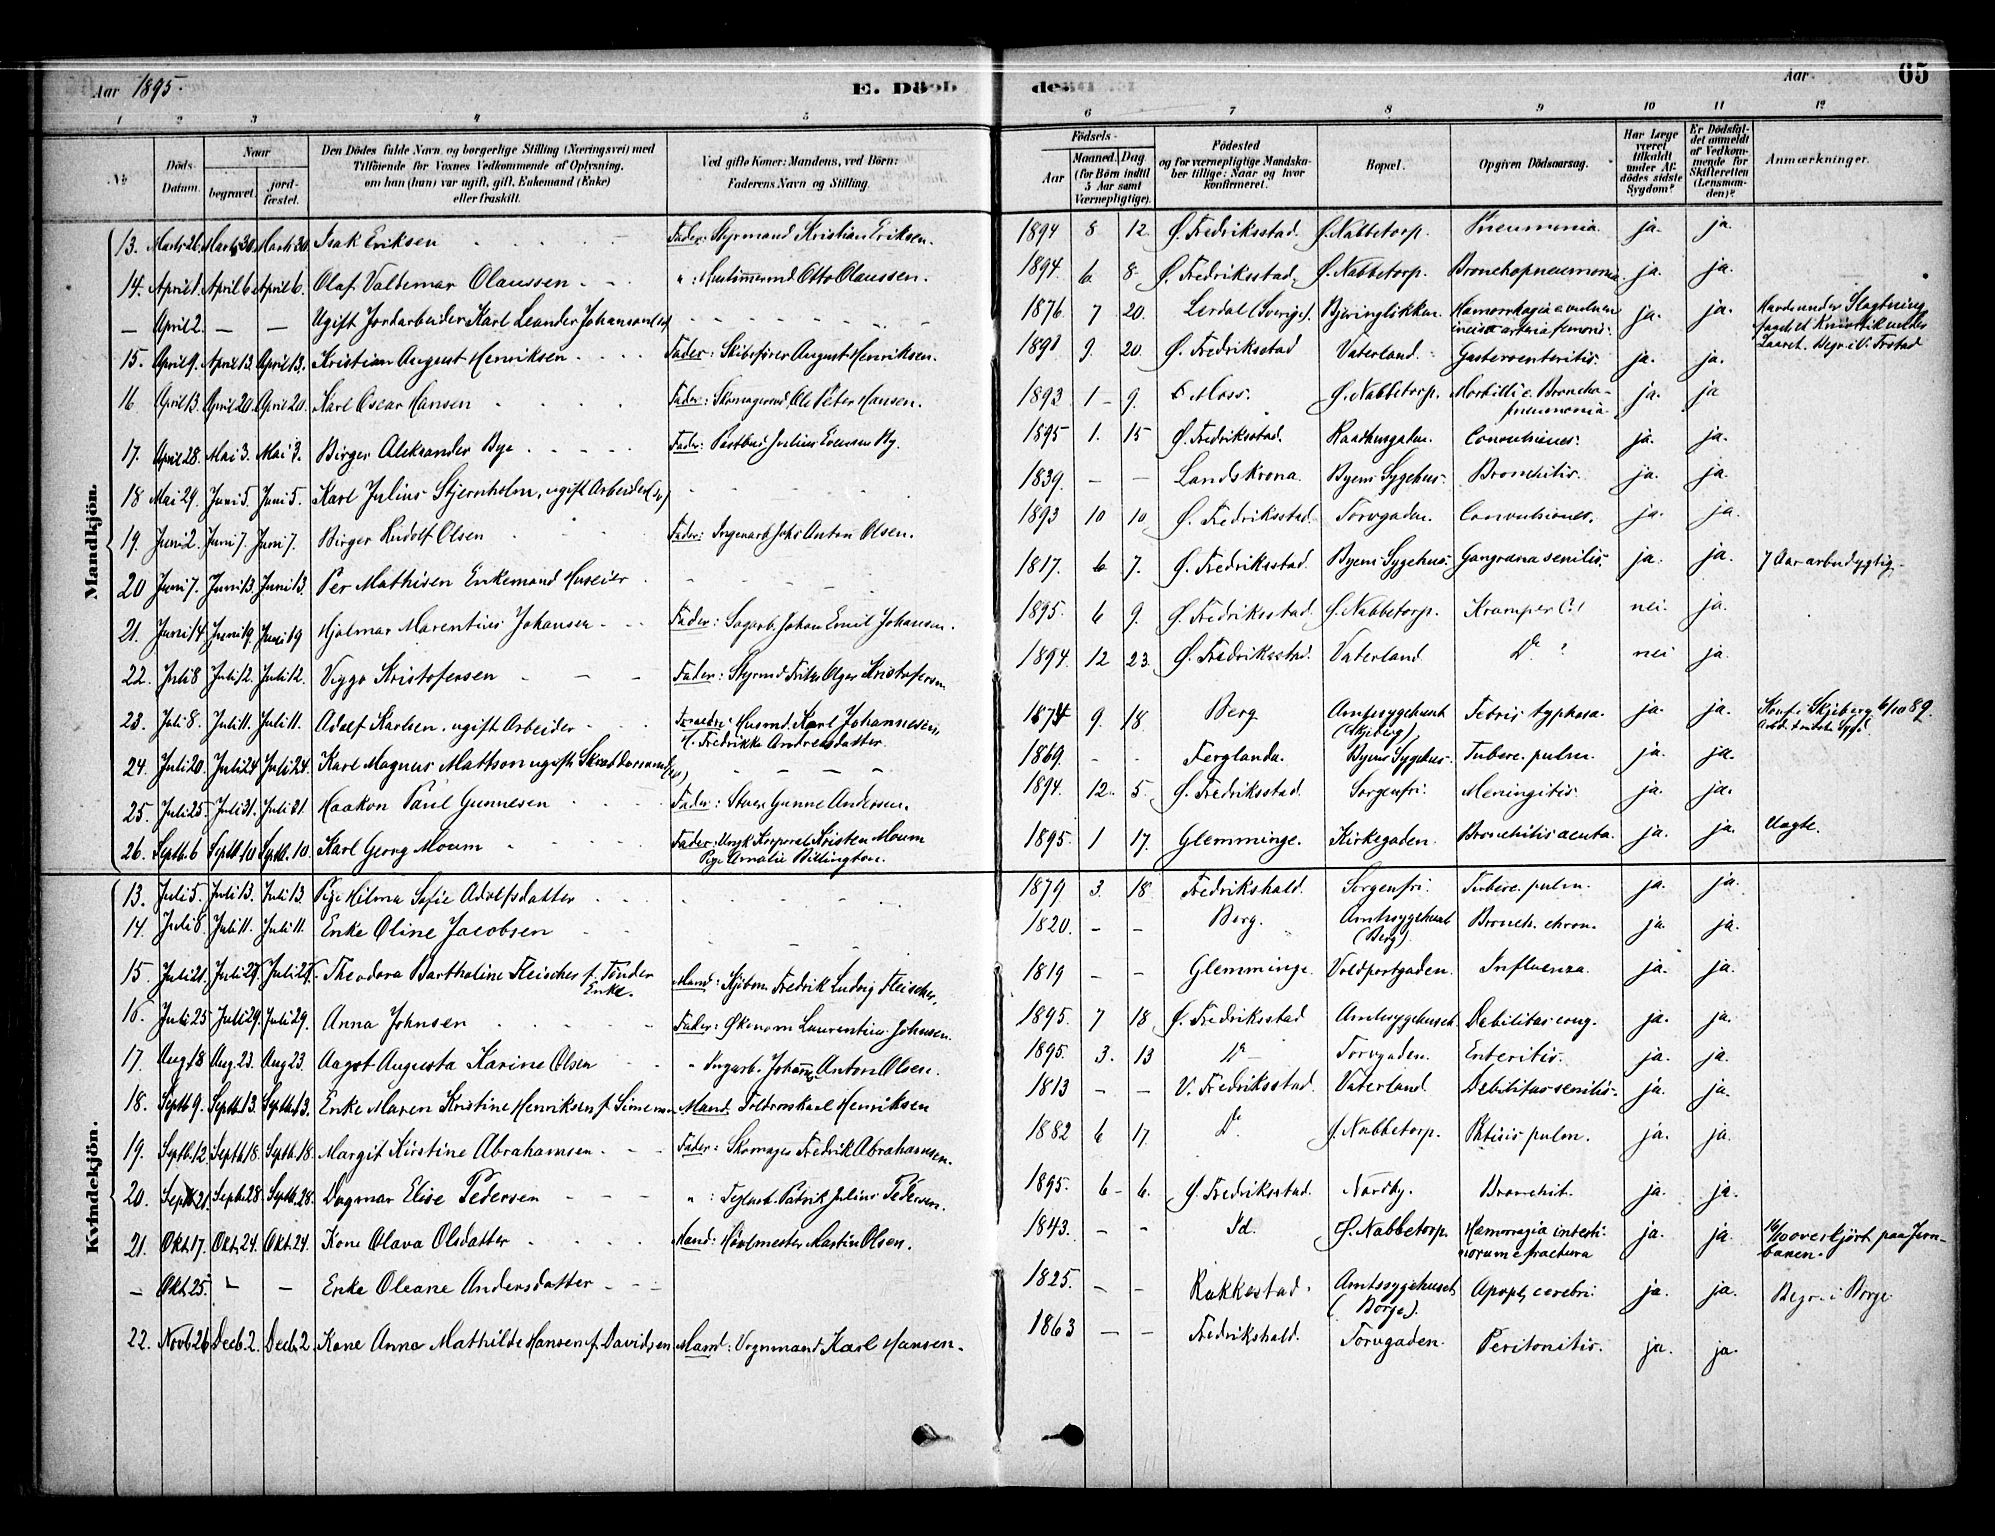 Aar 1895.
E. Döde
Aar
65
1 2 3 4 5 6 7 8 9 10 11 12
No
Döds-Datum.
Naar
begravet. jord-fæstet.
Den Dödes fulde Navn og borgerlige Stilling (Næringsvei) med
Tilföiende for Voxnes Vedkommende af Oplysning,
om han (hun) var ugift, gift, Enkemand (Enke)
eller fraskilt.
Ved gifte Koner: Mandens, ved Börn:
Faderens Navn og Stilling.
Födsels-
Aar
Maaned. Dag.
(for Börn indtil
5 Aar samt
Værnepligtige).
Födested
og for værnepligtige Mandska-
ber tillige: Naar og hvor
konfirmeret.
Bopæl.
Opgiven Dödsaarsag.
Har Læge
været
tilkaldt
under Af-
dödes sidste
Sygdom?
Er Dödsfal-
det anmeldt
af Vedkom-
mende for
Skifteretten
(Lensman-
den)?
Anmærkninger.
Mandkjön.
13. Marts 26. Marts 30. Marts 30. Isak Eriksen Fader: Styrmand Kristian Eriksen. 1894 8 12. Ø. Fredriksstad. Ø. Nabbetorp. Pneumonia. ja. ja.
14. April 1. April 6 April 6. Olaf Valdemar Olaussen " : Otto Olaussen. 1894. 6. 8. Ø. Fredriksstad. Ø. Nabbetorp. Bronchopneumonia. ja. ja.
— April 2. — — Ugift Jordarbeider Karl Leander Johanson 1876 7 20. Lerdal (Sverige). Bjeringlökken. Hæmorrhagia e vulnere ja. ja. Havde under Slagtning
incisa arteria femoris.
15. April 9. April 13. April 13. Kristian August Henriksen Fader: Skibsfører August Henriksen. 1891 9. 20. Ø. Fredriksstad Vaterland. Gastroenteritis. ja. ja. Laaret. Begr. i V. Frstad
16 April 13. April 20. April 20. Karl Oscar Hansen Fader: Skomagersvd Ole Peter Hansen. 1893 1 9. Moss. Ø. Nabbetorp. Morbilli c. Broncho- ja. ja
pneumonia.
17. April 28. Mai 3. Mai 3. Birger Aleksander Bye Fader: Postbud Julius Evensen By. 1895 1. 15 Ø. Fredriksstad. Raadhusgaden. Convulsiones. ja. ja.
18 Mai 29. Juni 5. Juni 5. Karl Julius Stjernholm, ugift Arbeider (sv) 1839. — — Landskrona. Byens Sygehus. Bronchitis. ja. ja.
19. Juni 2. Juni 7. Juni 7. Birger Rudolf Olsen Fader: Anton Olsen. 1893 10 10, Ø. Fredriksstad. Torvgaden. Convulsiones. ja. ja.
20 Juni 7. Juni 13. Juni 13. Per Mathisen Enkemand Huseier 1817. 6 7. Ø. Fredriksstad. Byens Sygehus. Gangræna senilis. ja. ja. 7 Aar arbudygtig.
21. Juni 14 Juni 19 Juni 19 Hjalmar Marentius Johansen Fader: Sagarb. Johan Emil Johansen. 1895. 6 9. Ø. Fredriksstad. Ø. Nabbetorp. Kramper nei. ja.
22. Juli 8 Juli 12. Juli 12. Viggo Kristofersen Fader: Styrmd Ager Kristofersen 1894. 12 23. Ø. Fredriksstad. Vaterland. Do ? nei ja.
23. Juli 8. Juli 11. Juli 11. Adolf Karlsen, ugift Arbeider Husmd. Karl Johannesen, 1874 9. 18 Berg Amtssygehuset Febris typhosa. ja. ja. Konf. i Skjeberg 6/10 89.
Fredrikke Andreasdatter (Skjeberg)
24. Juli 20. Juli 24 Juli 24. Karl Magnus Mattson ugift Skræddersvend 1869. — — Ferglanda. Byens Sygehus. Tuberc. pulm. ja. ja.
25. Juli 25. Juli 31. Juli 31. Haakon Paul Gunnesen Fader: Gunne Andersen. 1894. 12. 5. Ø. Fredriksstad. Sorgenfri. Meningitis. ja. ja.
26. Septb. 6 Septb. 10 Septb. 10 Karl Georg Moum Fader: Korporal Kristen Moum 1895. 1 17. Glemminge. Kirkegaden. Bronchitis acuta. ja. ja. Uægte.
Pige Amalie Billington.
Kvindekjön.
13. Juli 5. Juli 13. Juli 13. Pige Hilma Sofie Adolfsdatter 1879 3. 18. Fredrikshald. Sorgenfri. Tuberc. pulm. ja. ja.
14. Juli 8. Juli 11. Juli 11. Enke Oline Jacobsen 1820. — — Berg. Amtssygehuset Bronch. chron. ja. ja.
(Berg)
15. Juli 21. Juli 27. Juli 27. Theodora Bartholine Fleischer f. Tönder Mand: Kjøbm. Fredrik Ludvig Fleischer, 1819 — — Glemminge Voldportgaden. Influenza. ja. ja.
Enke.
16. Juli 25 Juli 29. Juli 29. Anna Johnsen Fader: Økonom Laurentius Johnsen. 1895. 7 18 Ø. Fredriksstad Amtssygehuset. Debilitas cong. ja. ja.
17. Aug. 18 Aug. 23. Aug. 23. Aagot Augusta Karine Olsen " Johan Anton Olsen. 1895. 3. 13 Do — Torvgaden. Enteritis. ja. ja.
18. Septb. 9. Septb. 13. Septb. 13. Enke Maren Kristine Henriksen f. Simensen Mand Henriksen 1813 — — V. Fredriksstad. Vaterland. Debilitas senilis. ja. ja.
19. Septb. 12. Septb. 18. Septb. 18. Margit Kirstine Abrahamsen. Fader: Skomager Fredrik Abrahamsen. 1882 6 17. Do. Ø. Nabbetorp. Phtisis pulm. ja. ja.
20. Septb. 21. Septb. 28. Septb. 28. Dagmar Elise Pedersen " : Teglarb. Patrik Julius Pedersen. 1895. 6 6. Ø. Fredriksstad. Nordby. Bronchit. ja. ja.
21. Okt. 17. Okt. 24. Okt. 24. Kone Olava Olsdatter Mand: Høvlmester Martin Olsen. 1843. — — Id. Ø. Nabbetorp. Hæmoragia intesti- ja. ja. 16/10 overkjørt paa Jern-
norum e fractura banen.
— Okt. 25. — — Enke Oleane Andersdatter 1825. — — Rakkestad. Amtssygehuset Apopl. cerebri. ja. ja. Begr. i Borge
(Borge).
22. Novb. 26 Decb. 2. Decb. 2. Kone Anna Mathilde Hansen f. Davidsen Mand: Vognmand Karl Hansen. 1863 — — Fredrikshald. Torvgaden. Peritonitis. ja. ja.